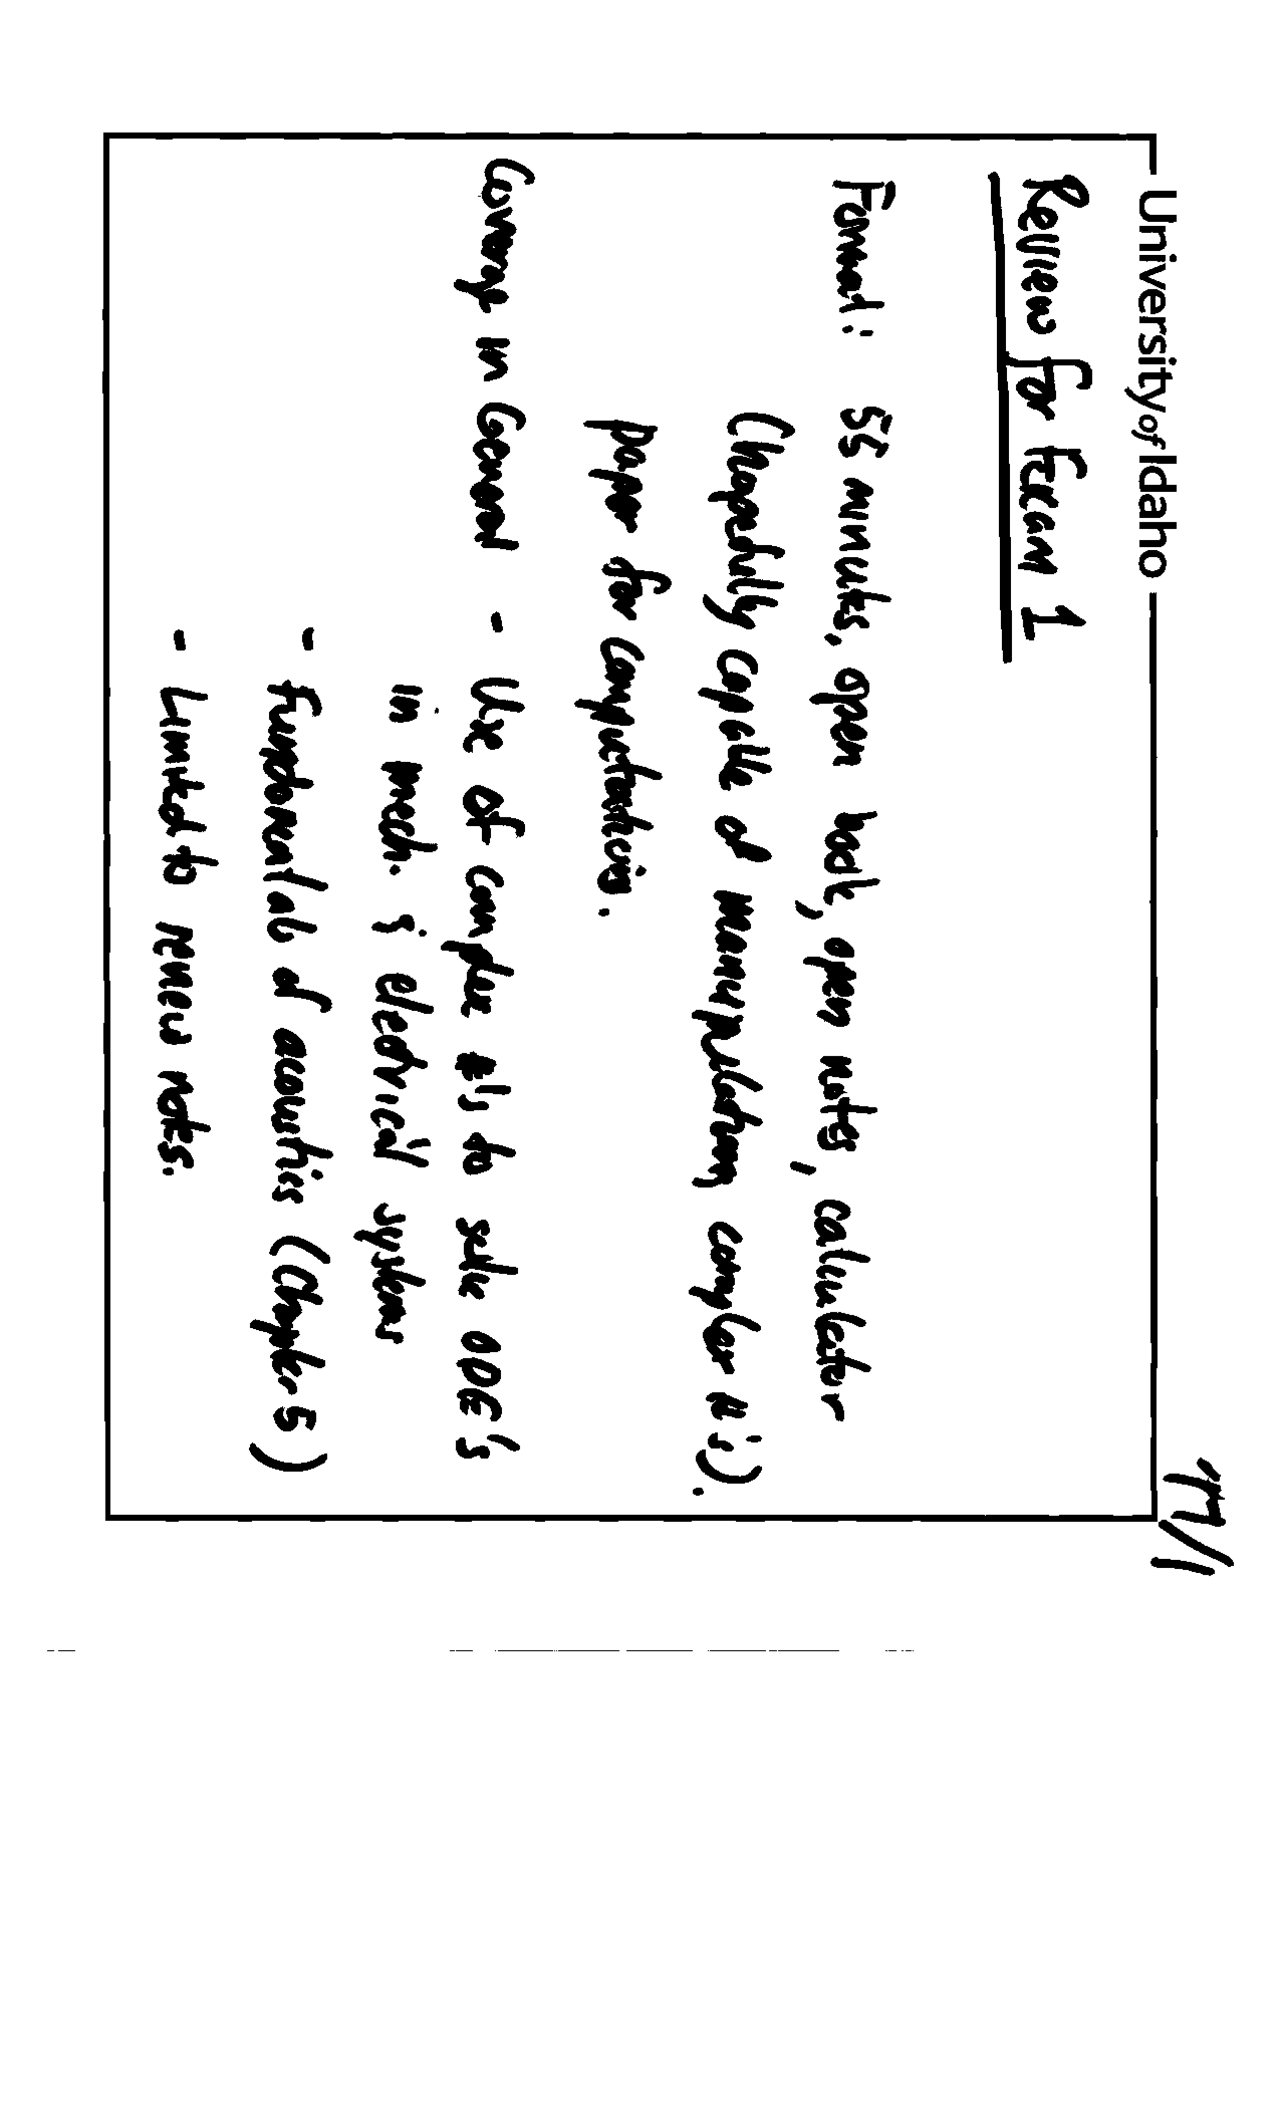 17/1
University of Idaho
Review for Exam 1
Format: 55 minutes, open book, open notes, calculator
(hopefully capable of manipulating complex #'s).
paper for computations.
Coverage in General - Use of complex #'s to solve ODE's
in mech. & electrical systems
- Fundamentals of acoustics (Chapter 5)
- Limited to review notes.